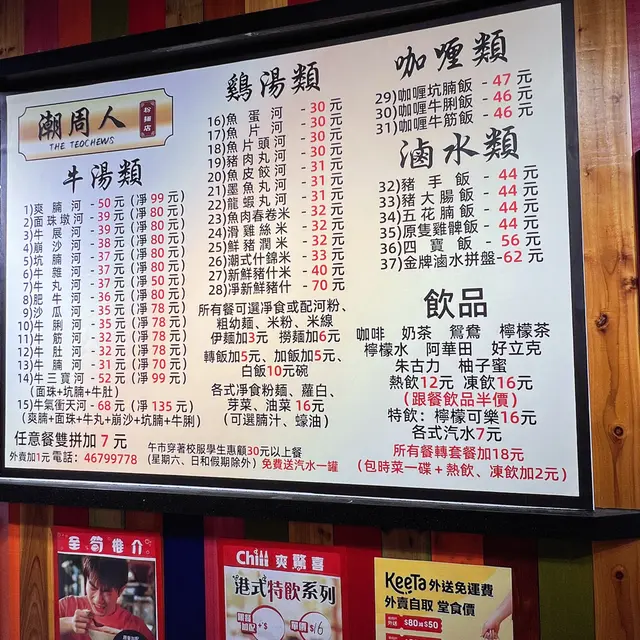 潮周人
粉麵店
THE TEOCHEWS
牛湯類
1)爽腩河-50元(淨99元)
2)面珠墩河-39元(淨80元)
3)牛展河-39元(淨80元)
4)崩沙河-38元(淨80元)
5)坑腩河-37元(淨80元)
6)牛雜河-37元(淨80元)
7)牛丸河-37元(淨50元)
8)肥牛河-36元(淨80元)
9)沙瓜河-35元(淨78元)
10)牛脷河-35元(淨78元)
11)牛筋河-32元(淨78元)
12)牛肚河-32元(淨78元)
13)牛腩河-31元(淨70元)
14)牛三寶河-52元(淨99元)
(面珠+坑腩+牛肚)
15)牛氣衝天河-68元(淨135元)
(爽腩+面珠+牛丸+崩沙+坑腩+牛脷)
任意餐雙拼加7元
外賣加1元 電話：46799778
雞湯類
16)魚蛋河-30元
17)魚片河-30元
18)魚片頭河-30元
19)豬肉丸河-30元
20)魚皮餃河-30元
21)墨魚丸河-31元
22)龍蝦丸河-31元
23)魚肉春卷米-32元
24)滑雞絲米-32元
25)鮮豬潤米-32元
26)潮式什錦米-33元
27)新鮮豬什米-40元
28)淨新鮮豬什-70元
所有餐可選淨食或配河粉、
粗幼麵、米粉、米線
伊麵加3元 撈麵加6元
轉飯加5元、加飯加5元、
白飯10元碗
各式淨食粉麵、蘿白、
芽菜、油菜16元
(可選腩汁、蠔油)
午市穿著校服學生惠顧30元以上餐
(星期六、日和假期除外)免費送汽水一罐
咖喱類
29)咖喱坑腩飯-47元
30)咖喱牛脷飯-46元
31)咖喱牛筋飯-46元
滷水類
32)豬手飯-44元
33)豬大腸飯-44元
34)五花腩飯-44元
35)原隻雞髀飯-44元
36)四寶飯-56元
37)金牌滷水拼盤-62元
飲品
咖啡 奶茶 鴛鴦 檸檬茶
檸檬水 阿華田 好立克
朱古力 柚子蜜
熱飲12元 凍飲16元
(跟餐飲品半價)
特飲：檸檬可樂16元
各式汽水7元
所有餐轉套餐加18元
(包時菜一碟+熱飲、凍飲加2元)
全筍推介
Chill 爽驚喜
港式特飲系列
KeeTa 外送免運費
外賣自取 堂食價